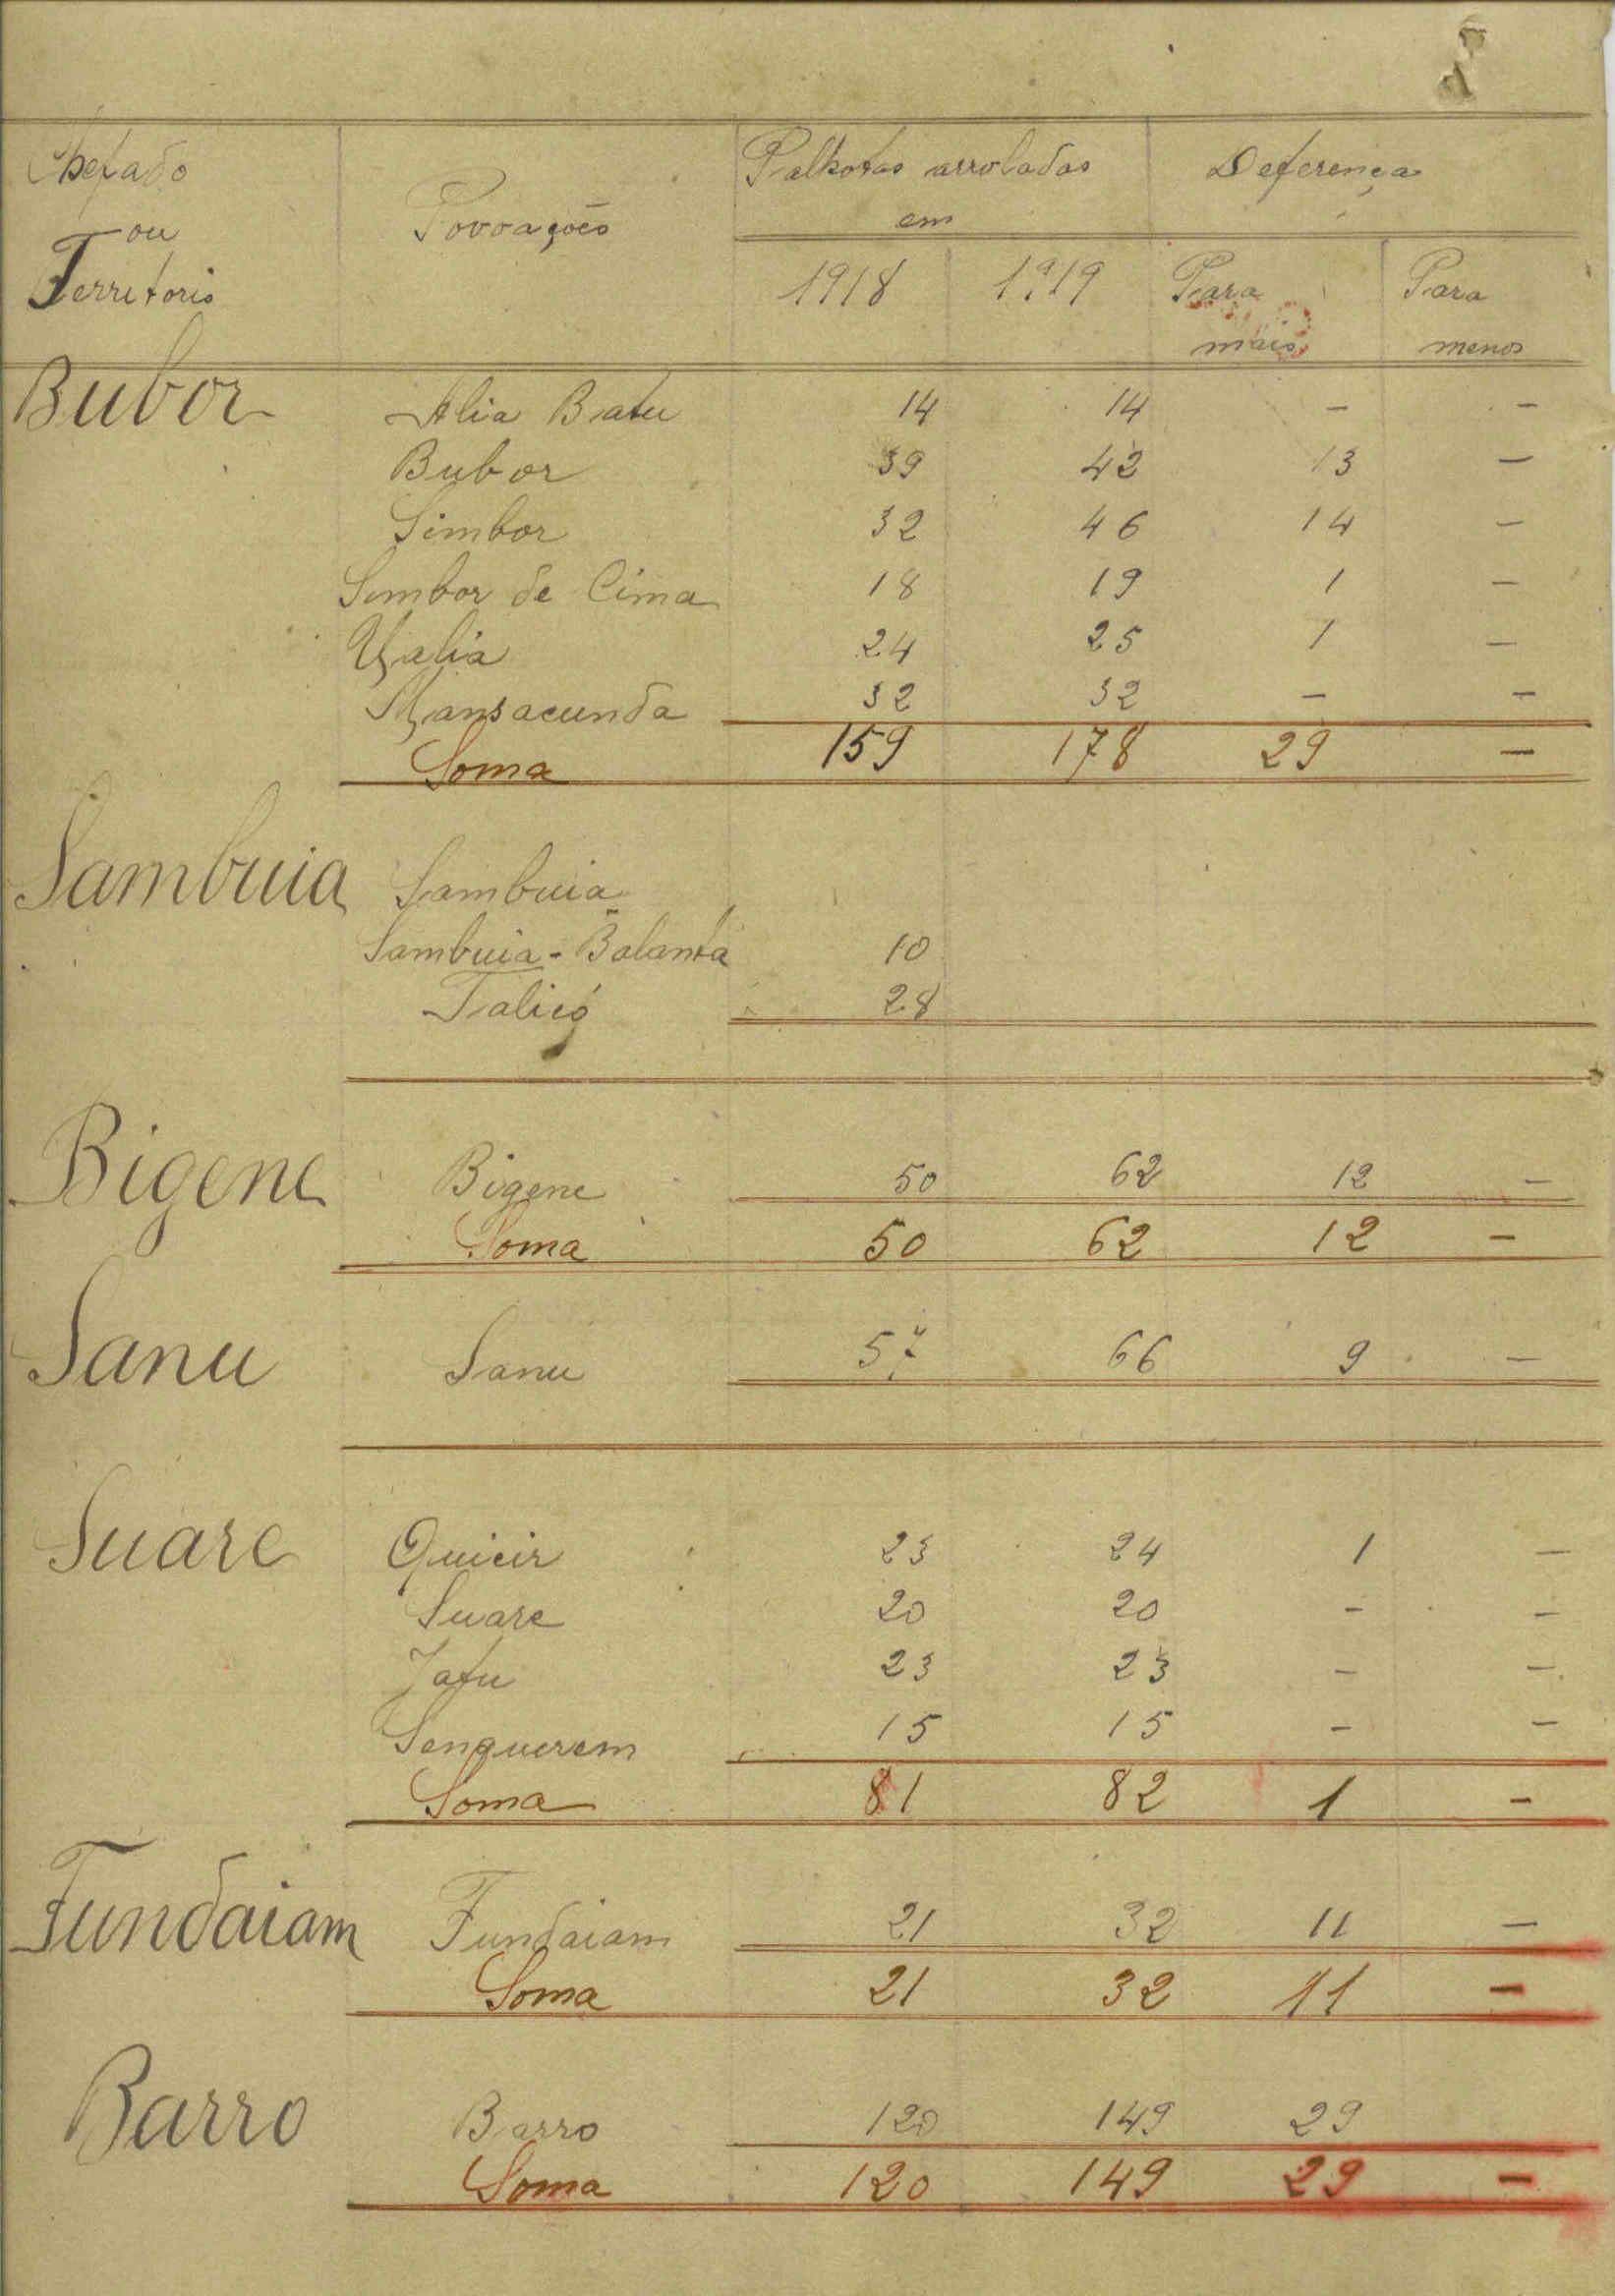 Chefado
ou
Territorio
Povoações
Palhotas arroladas
em
Deferença
1918 1919 Para mais Para menos
Bubor Alia Batu 14 14 - -
Bubor 39 42 13 -
Simbor 32 46 14 -
Simbor de Cima 18 19 1 -
Yalia 24 25 1 -
Mansacunda 32 32 - -
Soma 159 178 29 -
Sambuia Sambuia
Sambuia - Balanta 10
Talicó 28
Bigene Bigene 50 62 12 -
Soma 50 62 12 -
Sanu Sanu 57 66 9 -
Suare Quicir 23 24 1 -
Suare 20 20 - -
Jafu 23 23 - -
Senquerem 15 15 - -
Soma 81 82 1 -
Fundaiam Fundaiam 21 32 11 -
Soma 21 32 11 -
Barro Barro 120 149 29
Soma 120 149 29 -